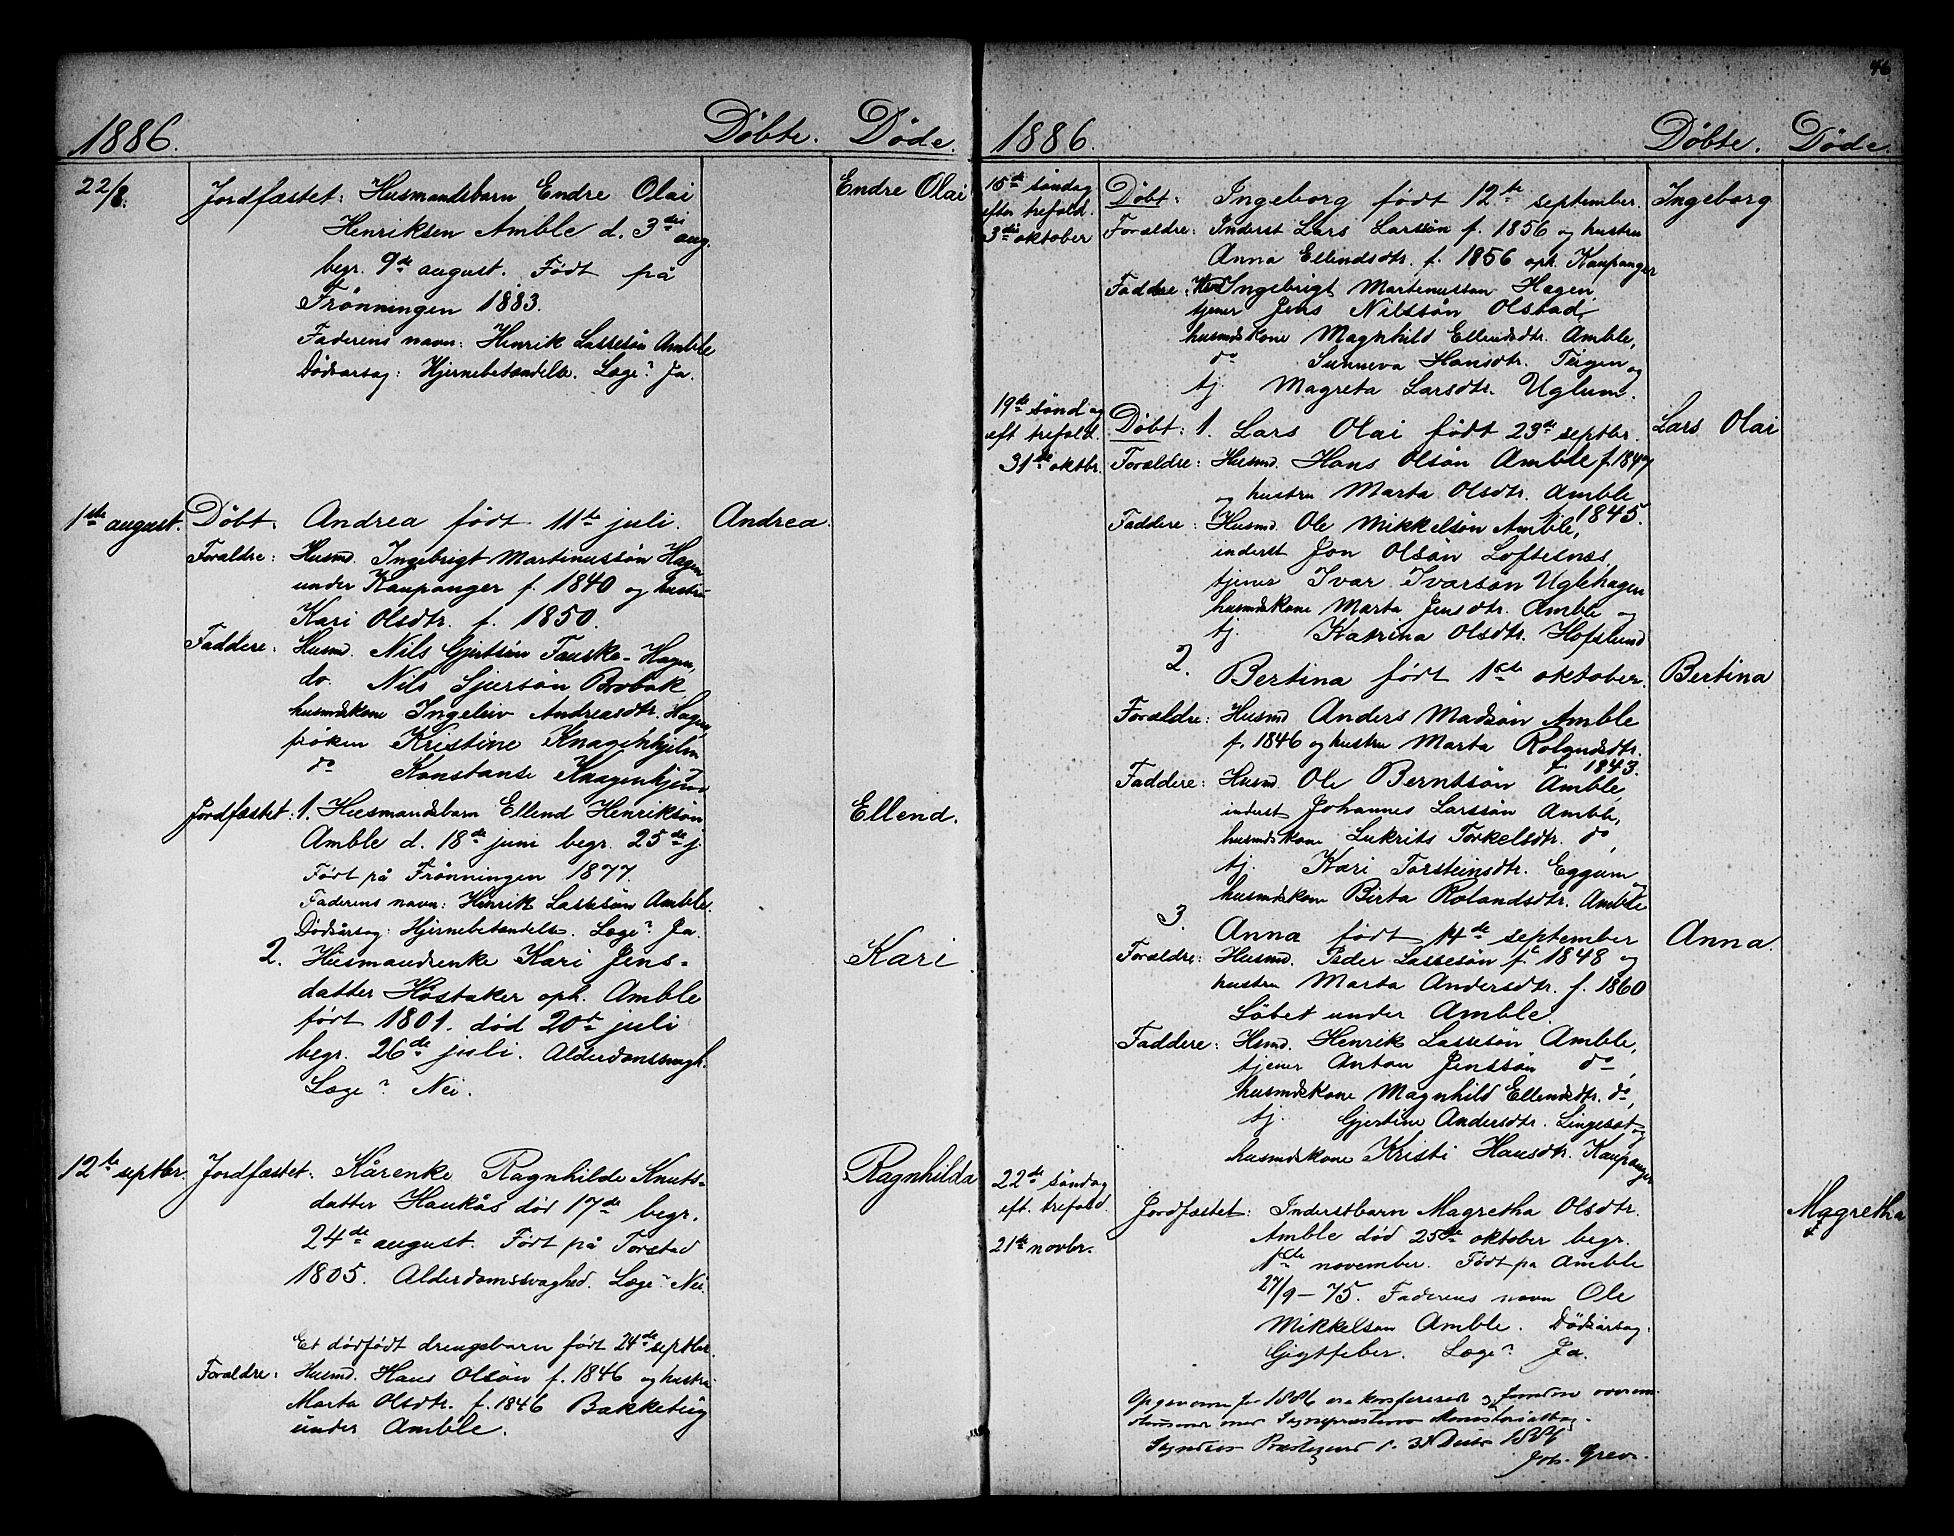 1886. Döbte. Döde.
22/8. Jordfæstet: Husmandsbarn Endre Olai Endre Olai
Henriksen Amble d. 3die aug.
begr. 9de august. Födt på
Frönningen 1883.
Faderens navn: Henrik Lassesön Amble
Dödsårsag: Hjernebetændelse. Læge? Ja.
1ste august. Döbt. Andrea födt 11te juli. Andrea.
Forældre: Husmd. Ingebrigt Martinussön Hagen
under Kaupanger f. 1840 og hustru
Kari Olsdtr. f. 1850.
Faddere: Husmd. Nils Gjertsön Fauske-Hagen,
do. Nils Sjursön Brobak,
husmdskone Ingeleiv Andreasdtr. Hagen,
fröken Kristine Knagenhjelm
do Konstanse Knagenhjelm
Jordfæstet: 1. Husmandsbarn Ellend Henriksön Ellend.
Amble d. 18de juni begr. 25de j.
Födt på Frönningen 1877.
Faderens navn: Henrik Lassesön Amble.
Dödsårsag: Hjernebetændelse. Læge? Ja.
2. Husmandsenke Kari Jens- Kari
datter Höstaker oph. Amble
födt 1801. död 20de juli
begr. 26de juli. Alderdomssvagh.
Læge? Nei.
12te septbr. Jordfæstet: Kårenke Ragnhilde Knuts- Ragnhilda
datter Haukås död 17de begr.
24de august. Födt på Torstad
1805. Alderdomssvaghed. Læge? Nei.
Et dödfödt drengebarn födt 24de septbr.
Forældre: Husmd. Hans Olsön f. 1846 og hustru
Marta Olsdtr. f. 1846 Bakketeig
under Amble.
46
1886. Döbte. Döde.
15de söndag
efter trefold.
3die oktober
Döbt: Ingeborg födt 12te september. Ingeborg
Forældre: Inderst Lars Larssön f. 1856 og hustru
Anna Ellendsdtr. f. 1856 oph. Kaupanger
Faddere: Ingebrigt Martinusson Hagen
tjener Jens Nilssön Olstad,
husmdskone Magnhild Ellendsdtr. Amble,
do Sunneva Hansdtr. Teigen og
tj Magreta Larsdtr. Uglum.
19de sönd ag
eft trefold.
31te oktbr.
Döbt: 1. Lars Olai födt 23de septbr. Lars Olai
Forældre: Husmd. Hans Olsön Amble f. 1847
og hustru Marta Olsdtr. Amble
f. 1845.
Faddere: Husmd. Ole Mikkelsön Amble,
inderst Jon Olsön Loftesnes,
tjener Ivar Ivarsön Uglehagen
husmdskone Marta Jensdtr. Amble og
tj. Katrina Olsdtr. Hofslund
2. Bertina födt 1ste oktober. Bertina
Forældre: Husmd Anders Madsön Amble
f. 1846 og hustru Marta Rolandsdtr.
f. 1843.
Faddere: Husmd. Ole Berntsön Amble,
inderst Johannes Larssön Amble,
husmdskone Lukrits Torkelsdtr. do,
tj. Kari Torsteinsdtr. Eggum og
husmdskone Birta Rolandsdtr. Amble
3. Anna födt 14de september Anna.
Forældre: Husmd. Peder Lassesön f. 1848 og
hustru Marta Andersdtr. f. 1860
Löbet under Amble.
Faddere: Hsmd. Henrik Lassesön Amble,
tjener Anton Jenssön do,
husmdskone Magnhild Ellendsdtr. do,
tj. Gjertine Andersdtr. Lingesat og
husmdskone Kristi Hansdtr. Kaupanger
22de söndag
eft. trefold.
21de novbr.
Jordfæstet: Inderstbarn Magretha Olsdtr. Magretha
Amble död 25de oktober begr.
1ste november. Födt på Amble
27/9-75. Faderens navn Ole
Mikkelsøn Amble. Dödsårsag:
Gigtfeber. Læge? Ja.
Opgaverne for 1886 ere konfererede og fundne overens-
stemmende med Sognepræstens Ministerialbog.
Sogndals Præstegaard d. 31 Decbr 1886
Joh. Greve.